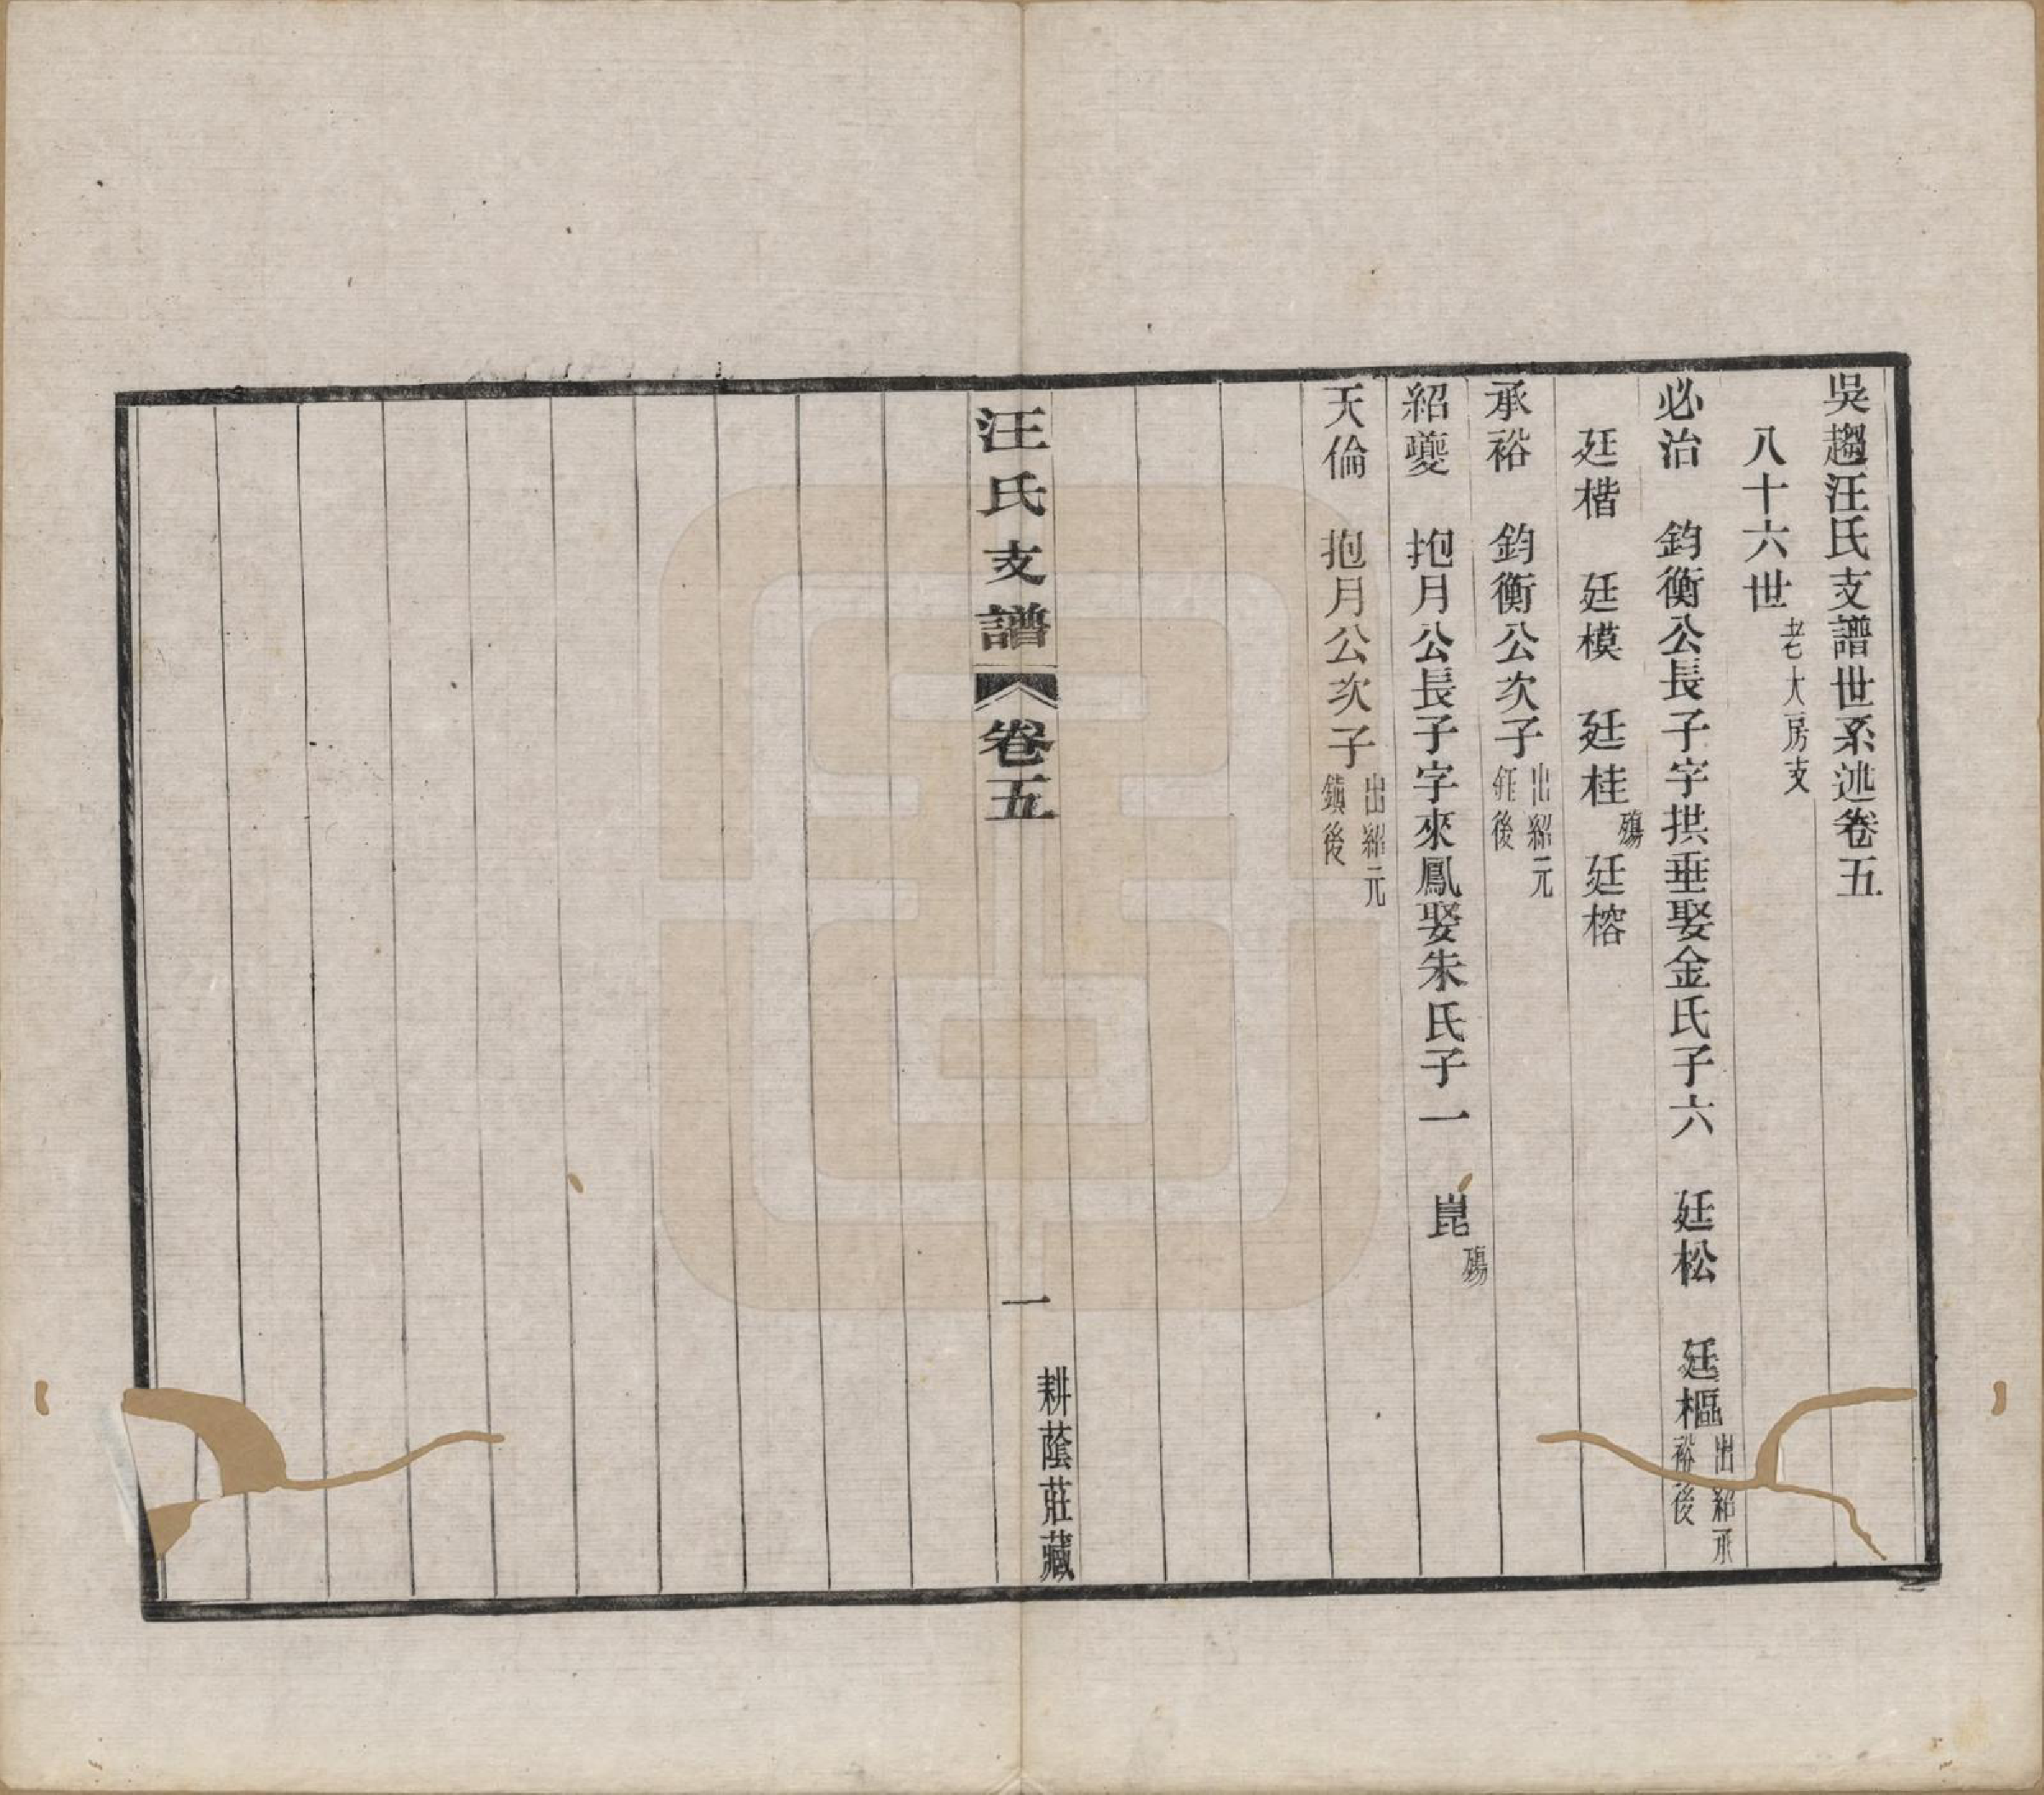 吳趨汪氏支譜世系述卷五
八十六世 老大房支
必治 鈞衡公長子字拱垂娶金氏子六 廷松 廷樞 出紹承裕後
廷楷 廷模 廷桂 殤 廷榕
承裕 鈞衡公次子 出紹元鉦後
紹夔 抱月公長子字來鳳娶朱氏子一 崑 殤
天倫 抱月公次子 出紹元鎮後
汪氏支譜 卷五 一 耕蔭莊藏